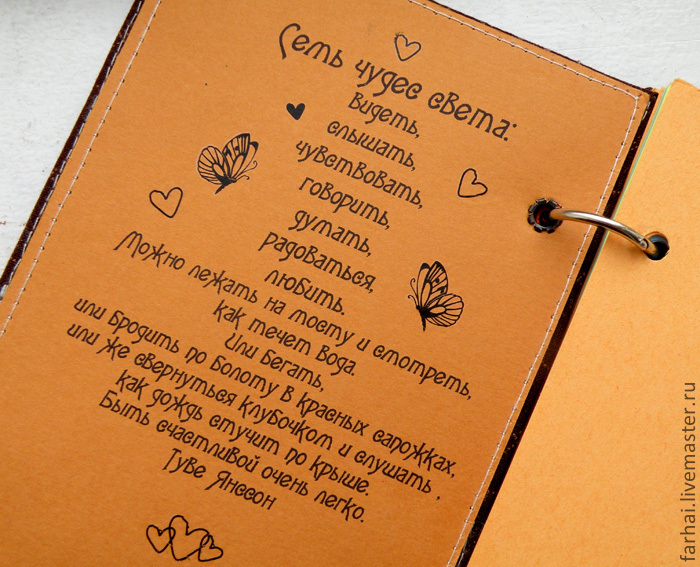 Семь чудес света:
Видеть,
слышать,
чувствовать,
говорить,
думать,
радоваться,
любить.
Можно лежать на мосту и смотреть,
как течет вода.
Или бегать,
или бродить по болоту в красных сапожках,
или же свернуться клубочком и слушать ,
как дождь стучит по крыше.
Быть счастливой очень легко.
Туве Янссон
farhai.livemaster.ru